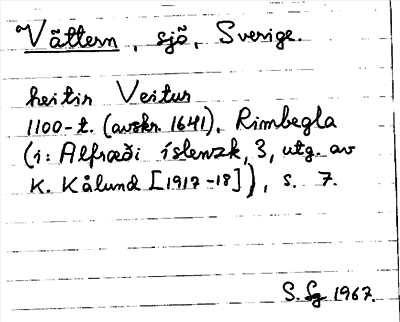 Vättern, sjö, Sverige.
heitir Veitur
1100-t. (avskr. 1641), Rimbegla
(i: Alfræði íslenzk, 3, utg. av
K. Kålund [1917-18]), s. 7.
S. Sg 1967.